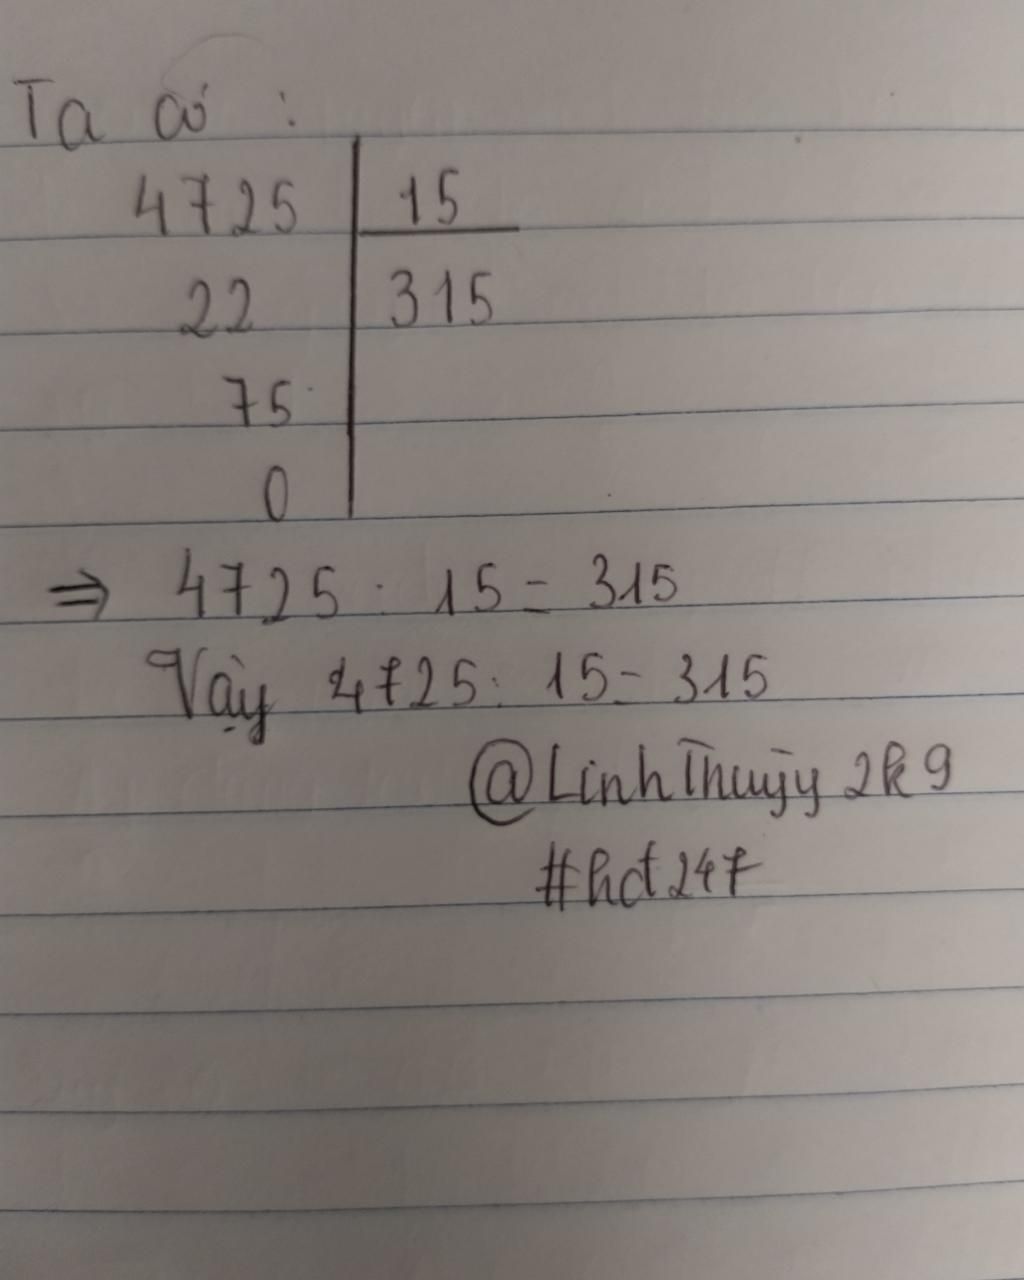 Ta có :
4725 15
22 315
75
0
⇒ 4725 : 15 = 315
Vậy 4725 : 15 = 315
@LinhThuỳy2k9
#hdt247